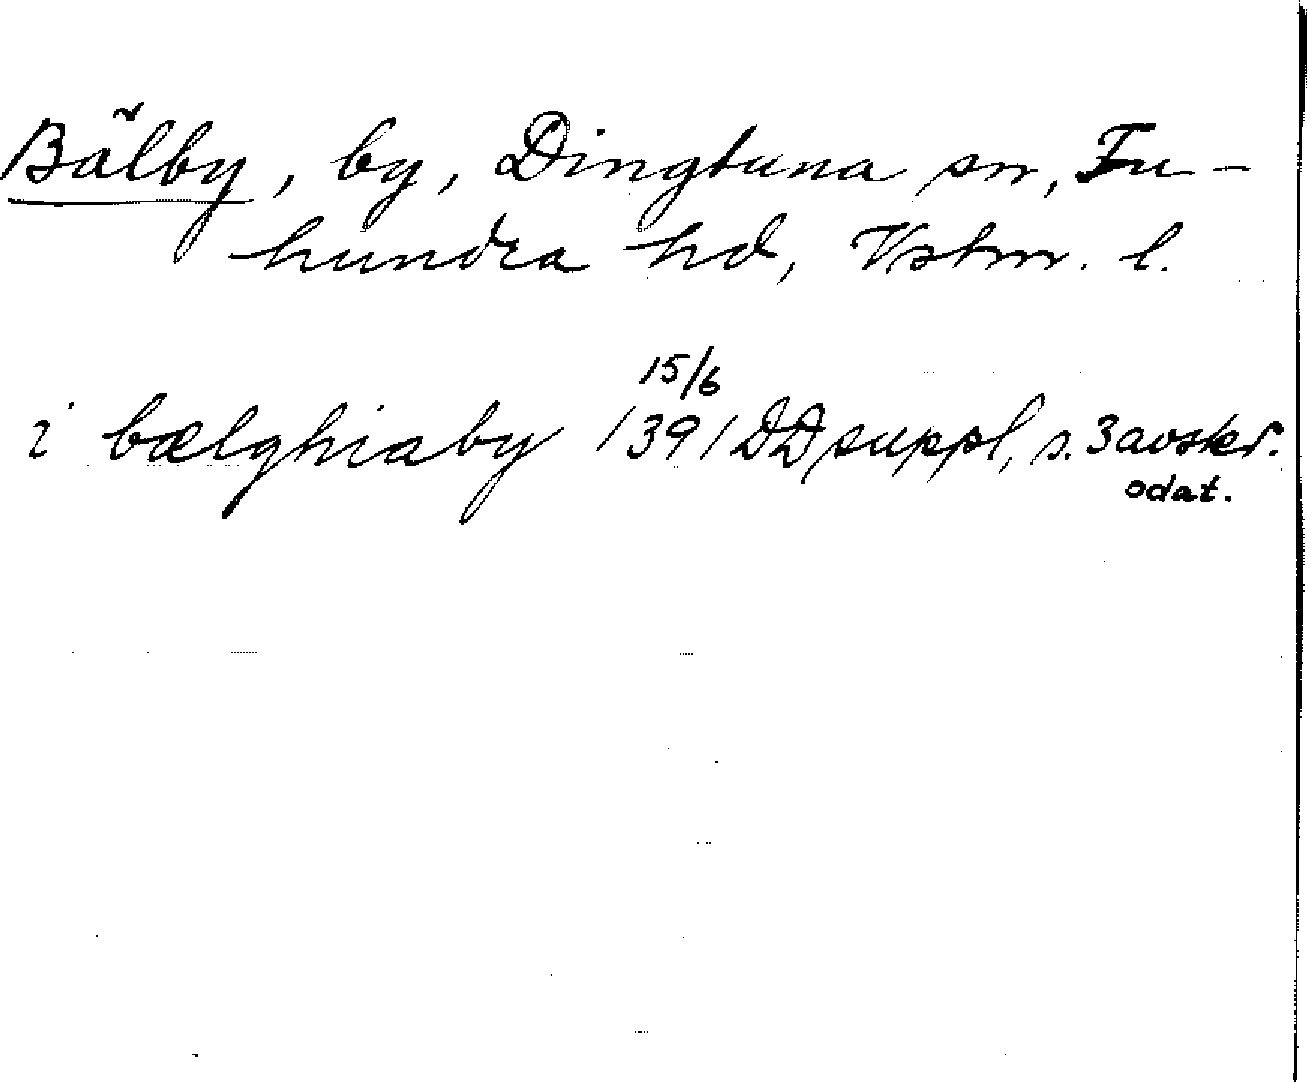 Bälby, by, Dingtuna sn, Tu-
hundra hd, Vstm. l.
15/6
i bælghiaby 1391 DD suppl, s. 3 avskr.
odat.